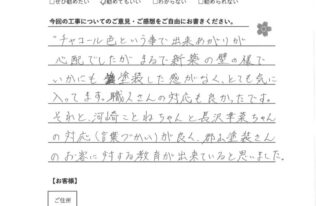 ぜひ勧めたい 勧めてもいい わからない 勧めない
今回の工事についてのご意見・ご感想をご自由にお書きください。
"チャコール色"という事で出来あがりが
心配でしたが まるで新築の壁の様で
いかにも 塗装した感がなく、とても気に
入ってます。職人さんの対応も良かったです。
それと、河崎ことねちゃんと長沢幸菜ちゃん
の対応(言葉づかい)が良く、郡山塗装さん
のお客に対する教育が出来ていると思いました。
【お客様】
ご住所